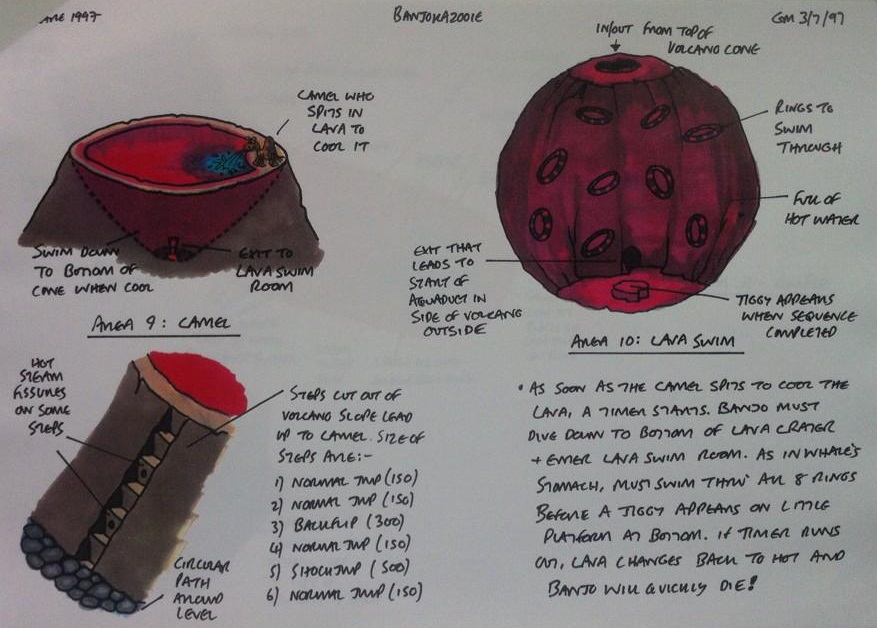 RARE 1997
BANJOKAZOOIE
GM 3/7/97
CAMEL WHO
SPITS IN
LAVA TO
COOL IT
SWIM DOWN
TO BOTTOM OF
CONE WHEN COOL
EXIT TO
LAVA SWIM
ROOM
AREA 9: CAMEL
IN/OUT FROM TOP OF
VOLCANO CONE
RINGS TO
SWIM
THROUGH
FULL OF
HOT WATER
EXIT THAT
LEADS TO
START OF
AQUADUCT IN
SIDE OF VOLCANO
OUTSIDE
TIGGY APPEARS
WHEN SEQUENCE
COMPLETED
AREA 10: LAVA SWIM
HOT
STEAM
FISSURES
ON SOME
STEPS
STEPS CUT OUT OF
VOLCANO SLOPE LEAD
UP TO CAMEL. SIZE OF
STEPS ARE:-
1) NORMAL JMP (150)
2) NORMAL JMP (150)
3) BACKFLIP (300)
4) NORMAL JMP (150)
5) SHOCKJMP (500)
6) NORMAL JMP (150)
CIRCULAR
PATH
AROUND
LEVEL
• AS SOON AS THE CAMEL SPITS TO COOL THE
LAVA, A TIMER STARTS. BANJO MUST
DIVE DOWN TO BOTTOM OF LAVA CRATER
+ ENTER LAVA SWIM ROOM. AS IN WHALE'S
STOMACH, MUST SWIM THRU ALL 8 RINGS
BEFORE A TIGGY APPEARS ON LITTLE
PLATFORM AT BOTTOM. IF TIMER RUNS
OUT, LAVA CHANGES BACK TO HOT AND
BANJO WILL QUICKLY DIE!